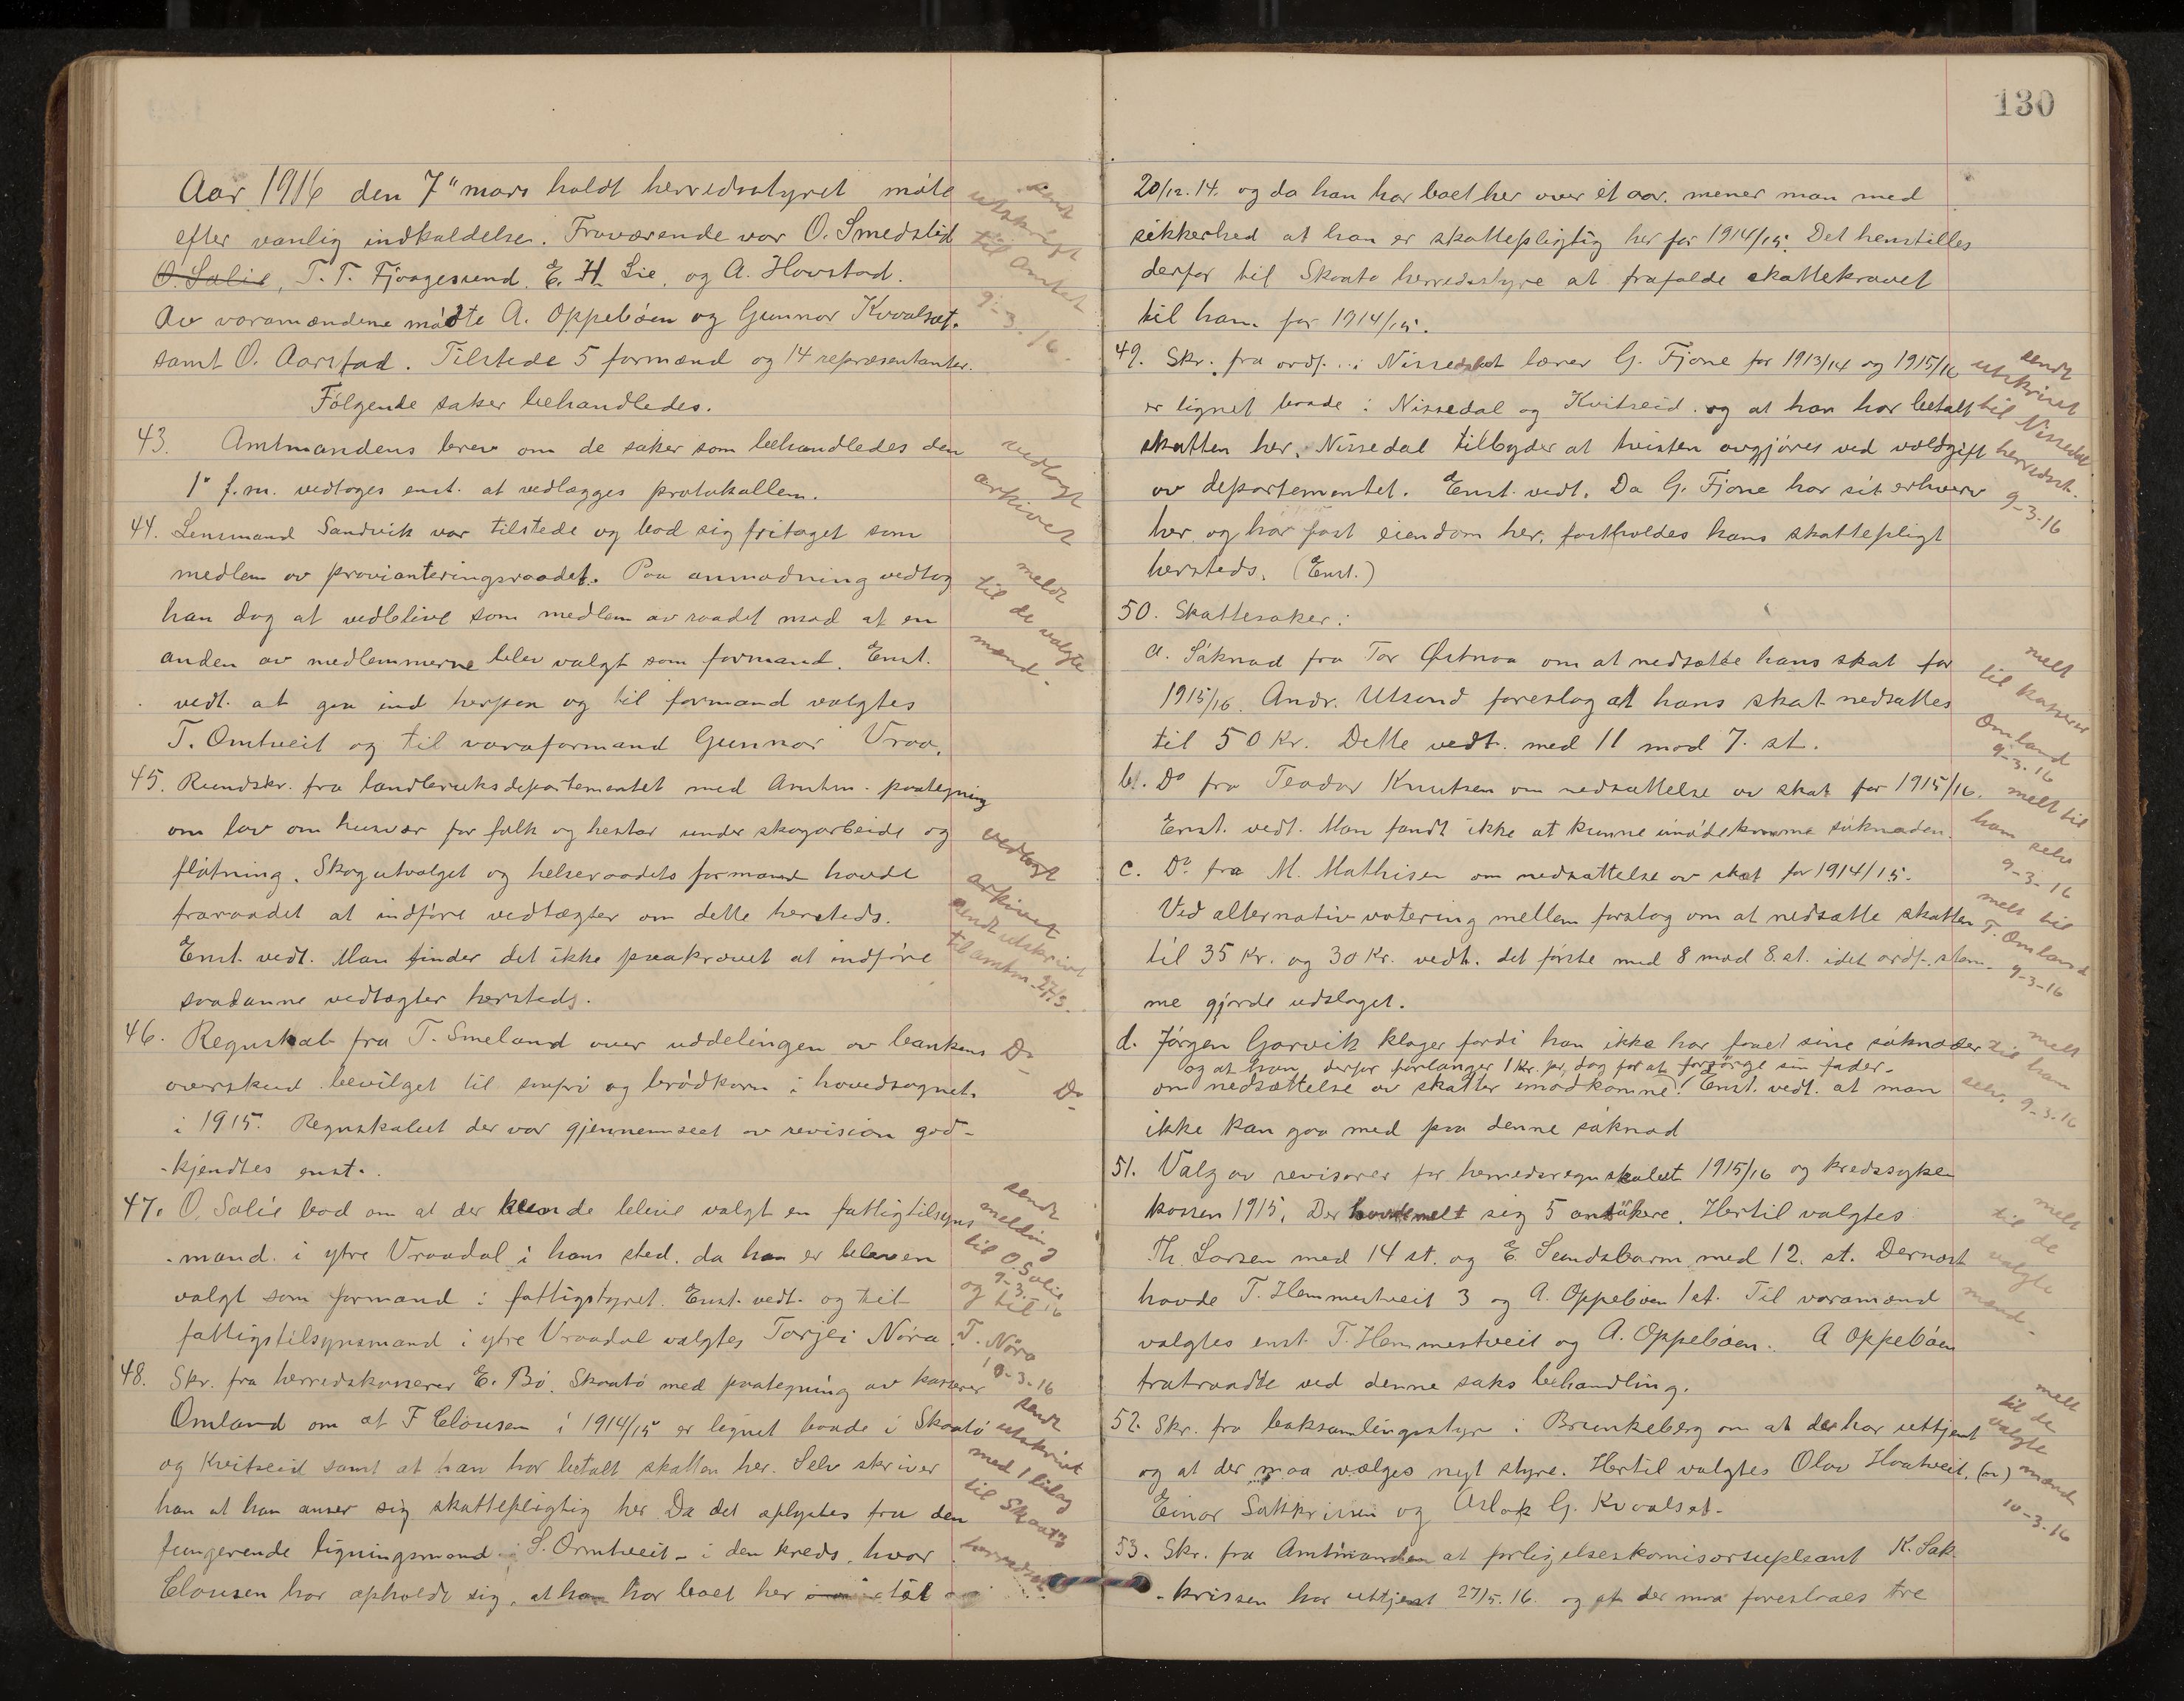 Aar 1916 den 7" mars holdt herredsstyret möte
efter vanlig indkaldelse. Fraværende var O. Smedslid
O. Salie, T. T. Fjaagesund. E. H. Lie. og A. Hovstad.
Av varamændene mödte A. Oppeböen og Gunnar Kvaalset.
samt O. Aarstad. Tilstede 5 formænd og 14 repræsentanter.
Fölgende saker behandledes.
43. Amtmandens brev om de saker som behandledes den
1" f.m. vedtoges enst. at vedlægges protokollen.
44. Lensmand Sandvik var tilstede og bad sig fritaget som
medlem av provianteringsraadet. Paa anmodning vedtog
han dog at vedblive som medlem av raadet mod at en
anden av medlemmerne blev valgt som formand. Enst.
vedt. at gaa ind herpaa og til formand valgtes
T. Omtveit og til varaformand Gunnar Vraa.
45. Rundskr. fra landbruksdepartementet med Amtm. paategning
om lov om husvær for folk og hestar under skogarbeide og
flötning. Skogutvalget og helseraadets formand havde
fraraadet at indföre vedtægter om dette hersteds.
Enst. vedt. Man finder det ikke paakrævet at indföre
saadanne vedtægter hersteds.
46. Regnskab fra T. Smeland over uddelingen av bankens
overskud bevilget til smpri og brödkorn i hovedsognet.
i 1915. Regnskabet der var gjennemseet av revision god-
-kjendtes enst.
47. O. Salie bad om at der kunde blive valgt en fattigtilsyns
-mand i ytre Vraadal i hans sted. da han er bleven
valgt som formand i fattigstyret. Enst. vedt. og til
fattigstilsynsmand i ytre Vraadal valgtes Torjei Nöra.
48. Skr. fra herredskasserer E. Bö. Skaatö med paategning av kasserer
Omland om at F Clausen i 1914/15 er lignet baade i Skaatö
og Kviteseid samt at han har betalt skatten her. Selv skriver
han at han anser sig skattepligtig her Da det oplystes fra den
fungerende ligningsmand S. Omtveit - i den kreds, hvor
Clausen har opholdt sig, at han har boet her
sendt
utskrift
til Amtet
9-3.16.
vedlagt
arkivet
meldt
til de valgte
mænd.
vedlagt
arkivet
sendt utskrivt
til amtm. 27/3.
Do
Do
sendt
melding
til O. Salie
9-3.16
og til
T. Nöra
10-3-16
sendt
utskrivt
med 1 bilag
til Skaatö
herredsst.
130
20/12.14. og da han har boet her over et aar. mener man med
sikkerhed at han er skattepligtig her for 1914/15. Det henstilles
derfor til Skaatö herredsstyre at frafalde skattekravet
til ham for 1914/15.
49. Skr. fra ordf. i Nissedal at lærer G. Fjone for 1913/14 og 1915/16
er lignet baade i Nissedal og Kviteseid og at han har betalt
skatten her. Nissedal tilbyder at tvisten avgjöres ved voldgift
av departementet. Enst. vedt. Da G. Fjone har sit erhverv
her og har fast eiendom her, fastholdes hans skattepligt
hersteds. (Enst.)
50. Skattesaker:
a. Söknad fra Tor Østnaa om at nedsætte hans skat for
1915/16. Andr. Utsund foreslog at hans skat nedsættes
til 50 Kr. Dette vedt. med 11 mod 7. st.
b. Do fra Teodor Knutsen om nedsættelse av skat for 1915/16.
Enst. vedt. Man fandt ikke at kunne imödekomme söknaden.
c. Do fra M. Mathisen om nedsættelse av skat for 1914/15.
Ved alternativ votering mellem forslag om at nedsætte skatten
til 35 Kr. og 30 Kr. vedt. det förste med 8 mod 8. st. idet ordf. stem-
me gjorde udslaget.
d. Jörgen Garvik klager fordi han ikke har faaet sine söknader
og at han derfor forlanger 1 Kr. pr. dag for at forsörge sin fader.
om nedsættelse av skatter imödkomne. Enst. vedt. at man
ikke kan gaa med paa denne söknad
51. Valg av revisorer for herredsregnskabet 1915/16 og kredssyke
kassen 1915. Der havde melt sig 5 ansökere. Hertil valgtes
Th. Larsen med 14 st. og E. Sundsbarm med 12. st. Dernæst
havde T. Hemmestveit 3 og A. Oppeböen 1 st. Til varamænd
valgtes enst T. Hemmestveit og A. Oppeböen. A Oppeböen
fratraadte ved denne saks behandling.
52. Skr. fra boksamlingsstyre i Brunkeberg om at der har uttjent
og at der maa vælges nyt styre. Hertil valgtes Olav Hvatveit.
Einar Sakkrissen og Aslak G. Kvaalset.
53. Skr. fra Amtmanden at forligelseskomisærsupleant K. Sak-
-krissen har uttjent 27/5.16. og at der maa foreslaaes tre
sendt
utskrivt
til Nissedal
herredsst.
9-3-16
melt
til kasserer
Omland
9-3-16
melt til
ham selv
9-3-16
melt til
T. Omland
9-3-16
melt
til ham
selv. 9-3-16
melt
til de
valgte
mænd.
melt
til de
valgte
mænd
10-3-16